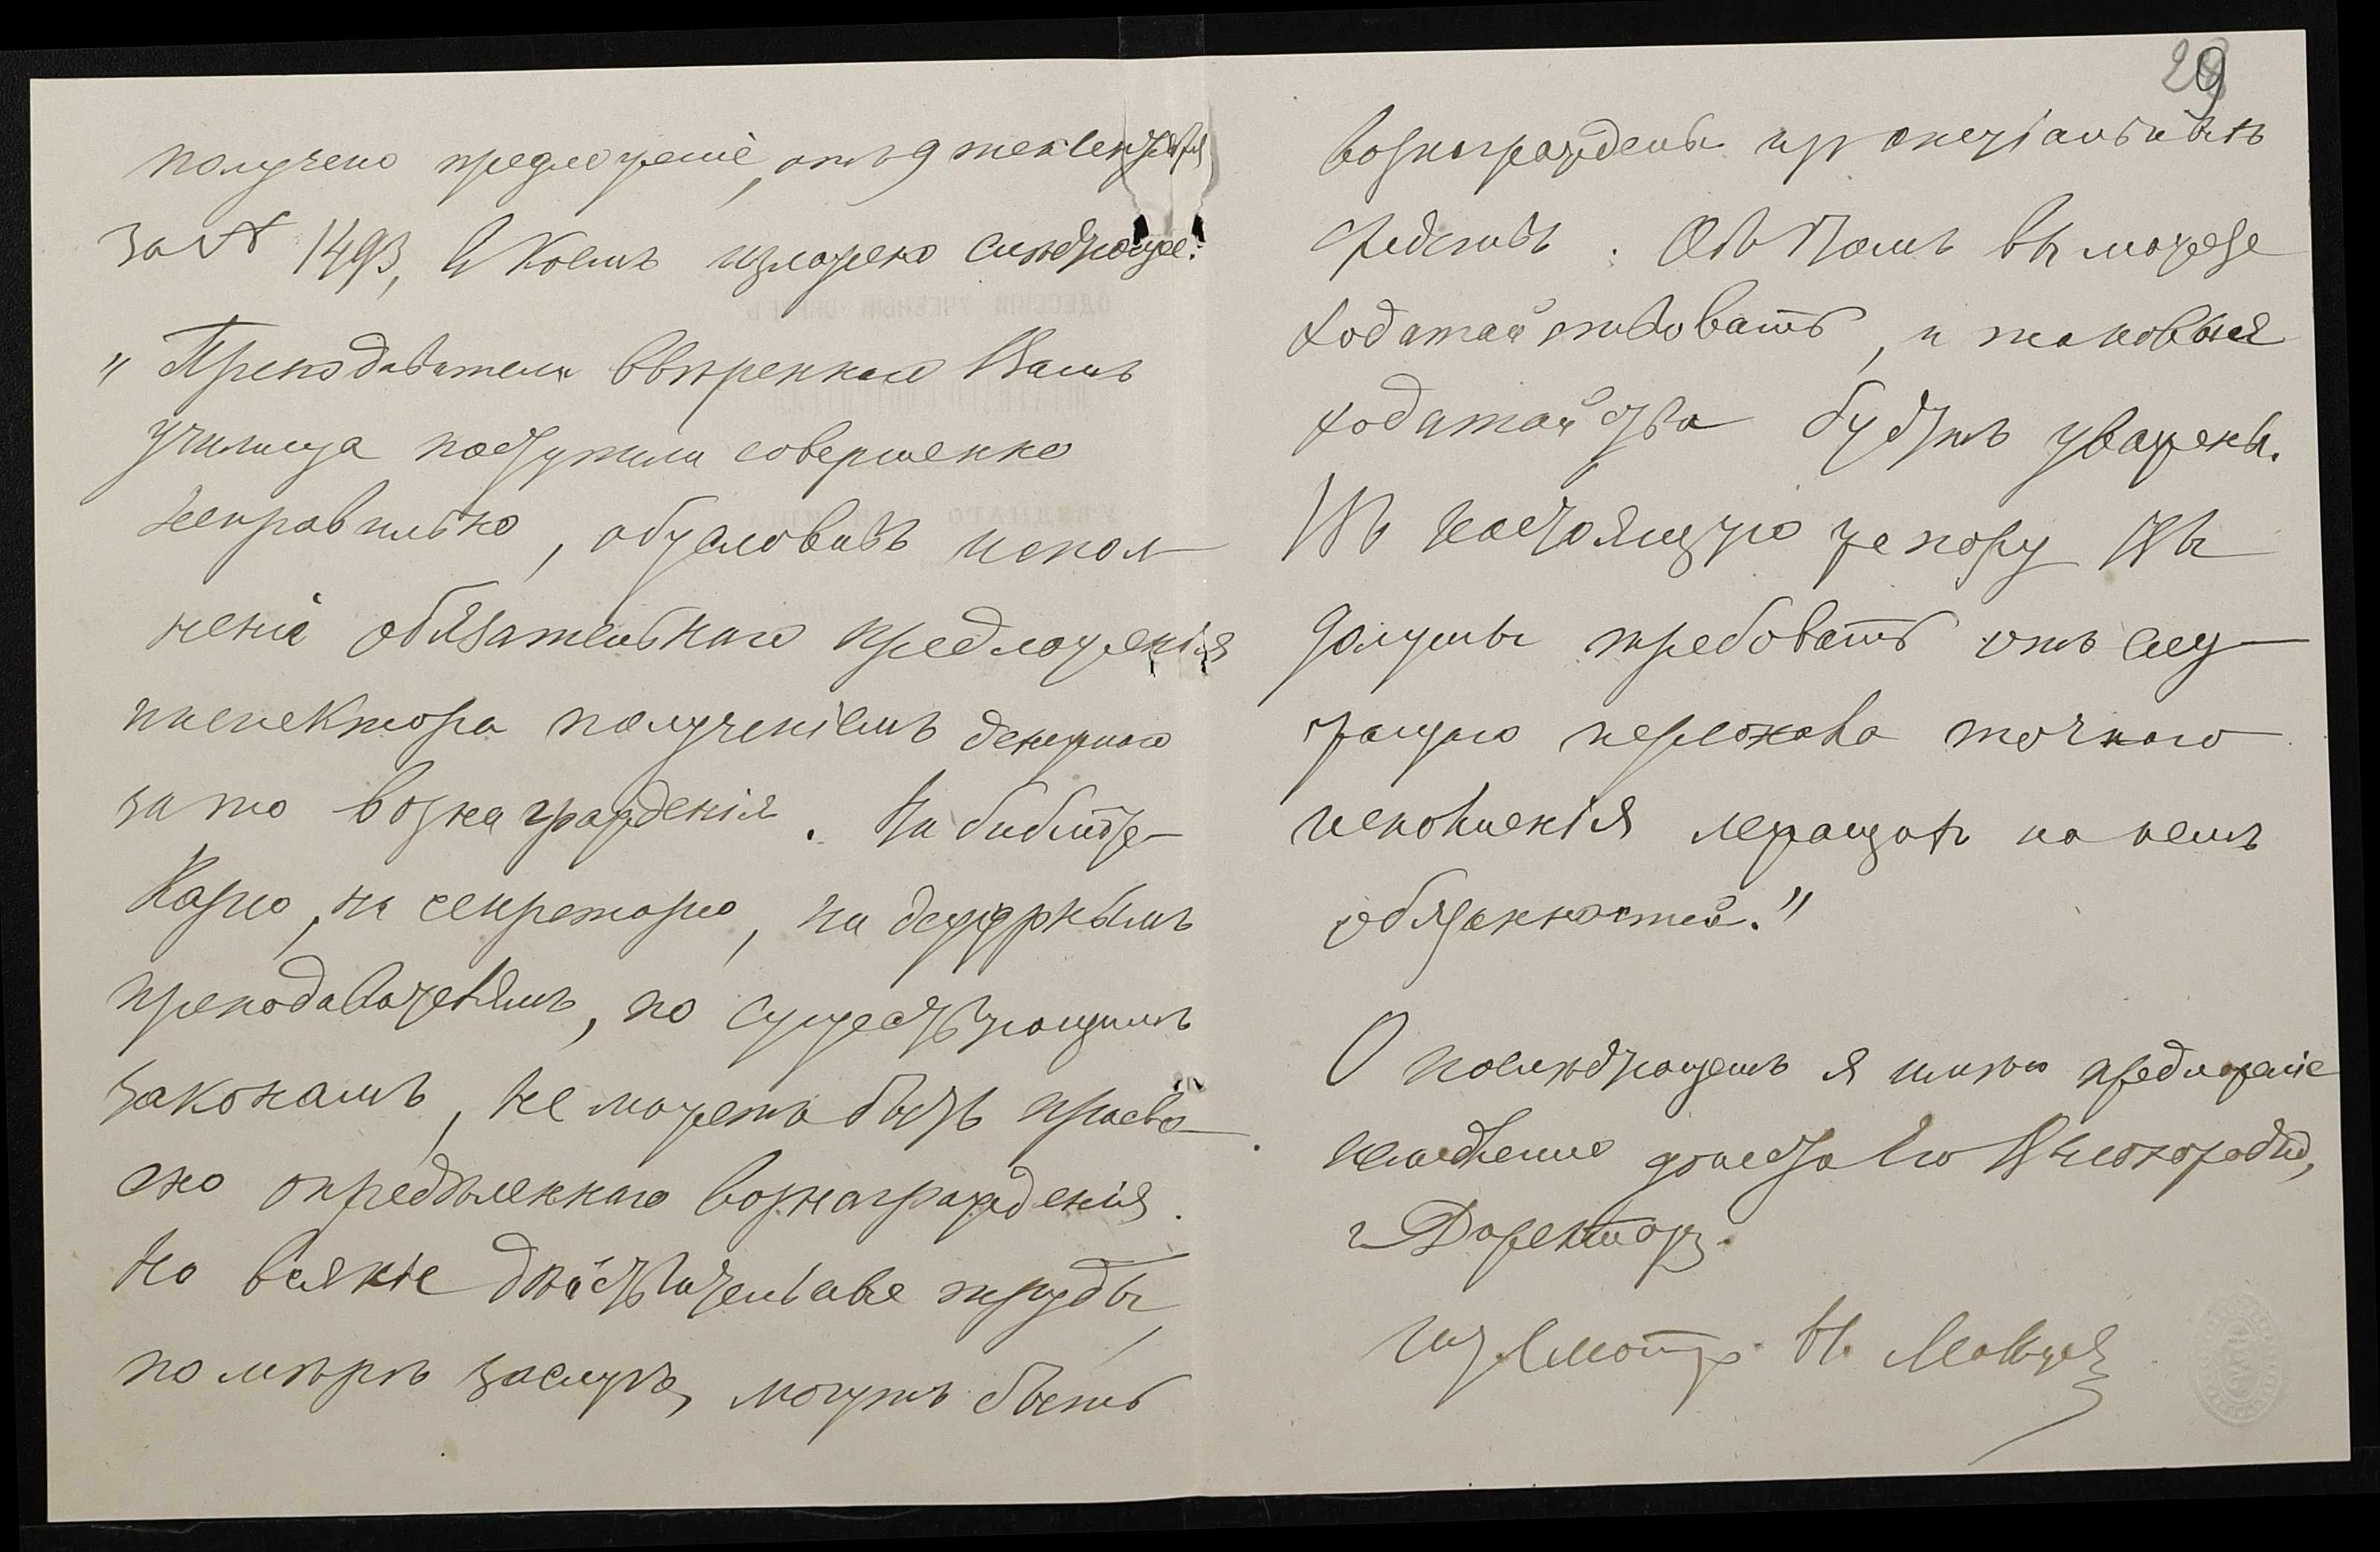 29
получено предложеніе, отъ 9 текентября
за № 1493, въ коемъ изложено слѣдующее:
"Преподаватели ввѣреннаго Вамъ
училища поступили совершенно
неправильно, обусловивъ испол-
неніе обязательнаго предложенія
инспектора полученіемъ денежнаго
за то вознагражденія. Ни библіоте-
карю, ни секретарю, ни дежурнымъ
преподавателямъ, по существующимъ
законамъ, не можетъ быть присво-
ено опредѣленнаго вознагражденія.
Но всякіе дѣйствительные труды,
по мѣрѣ заслугъ, могутъ быть
вознаграждены изъ спеціальныхъ
средствъ. Объ этомъ вы можете
ходатайствовать, и таковыя
ходатайства будутъ уважены.
Въ настоящую же пору Вы
должны требовать отъ слу-
жащаго персонала точнаго
исполненія лежащихъ на немъ
обязанностей."
О послѣдующемъ я имѣю предложеніе
немедленно донести Его Высокородію,
г. Директору.
Инспекторъ Н.